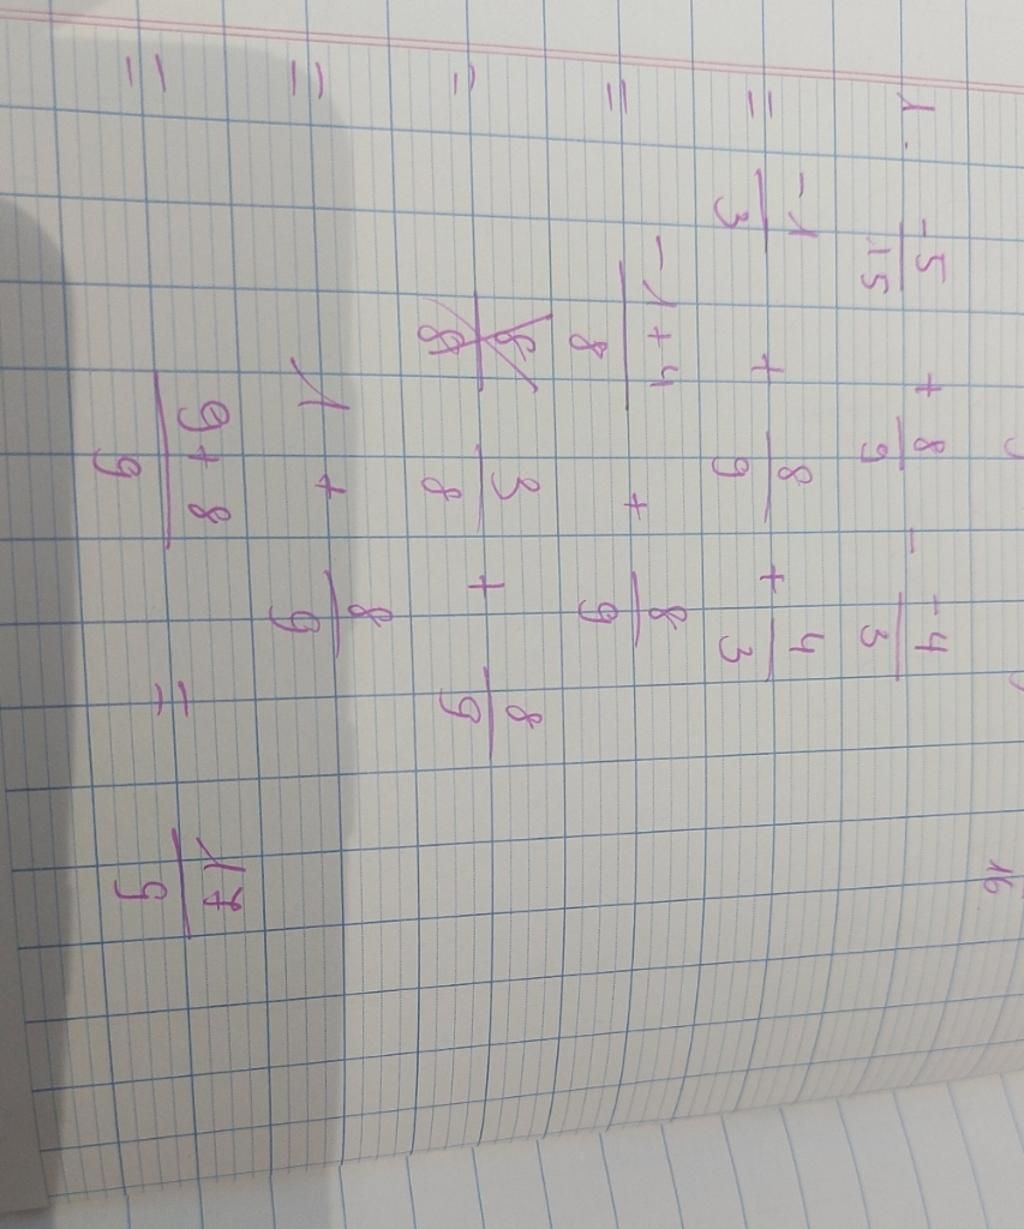 16
1. -5/15 + 8/9 - -4/3
= -1/3 + 8/9 + 4/3
= -1+4/8 + 8/9
= 3/8 + 8/9
= 1 + 8/9
= 9+8/9 = 17/9